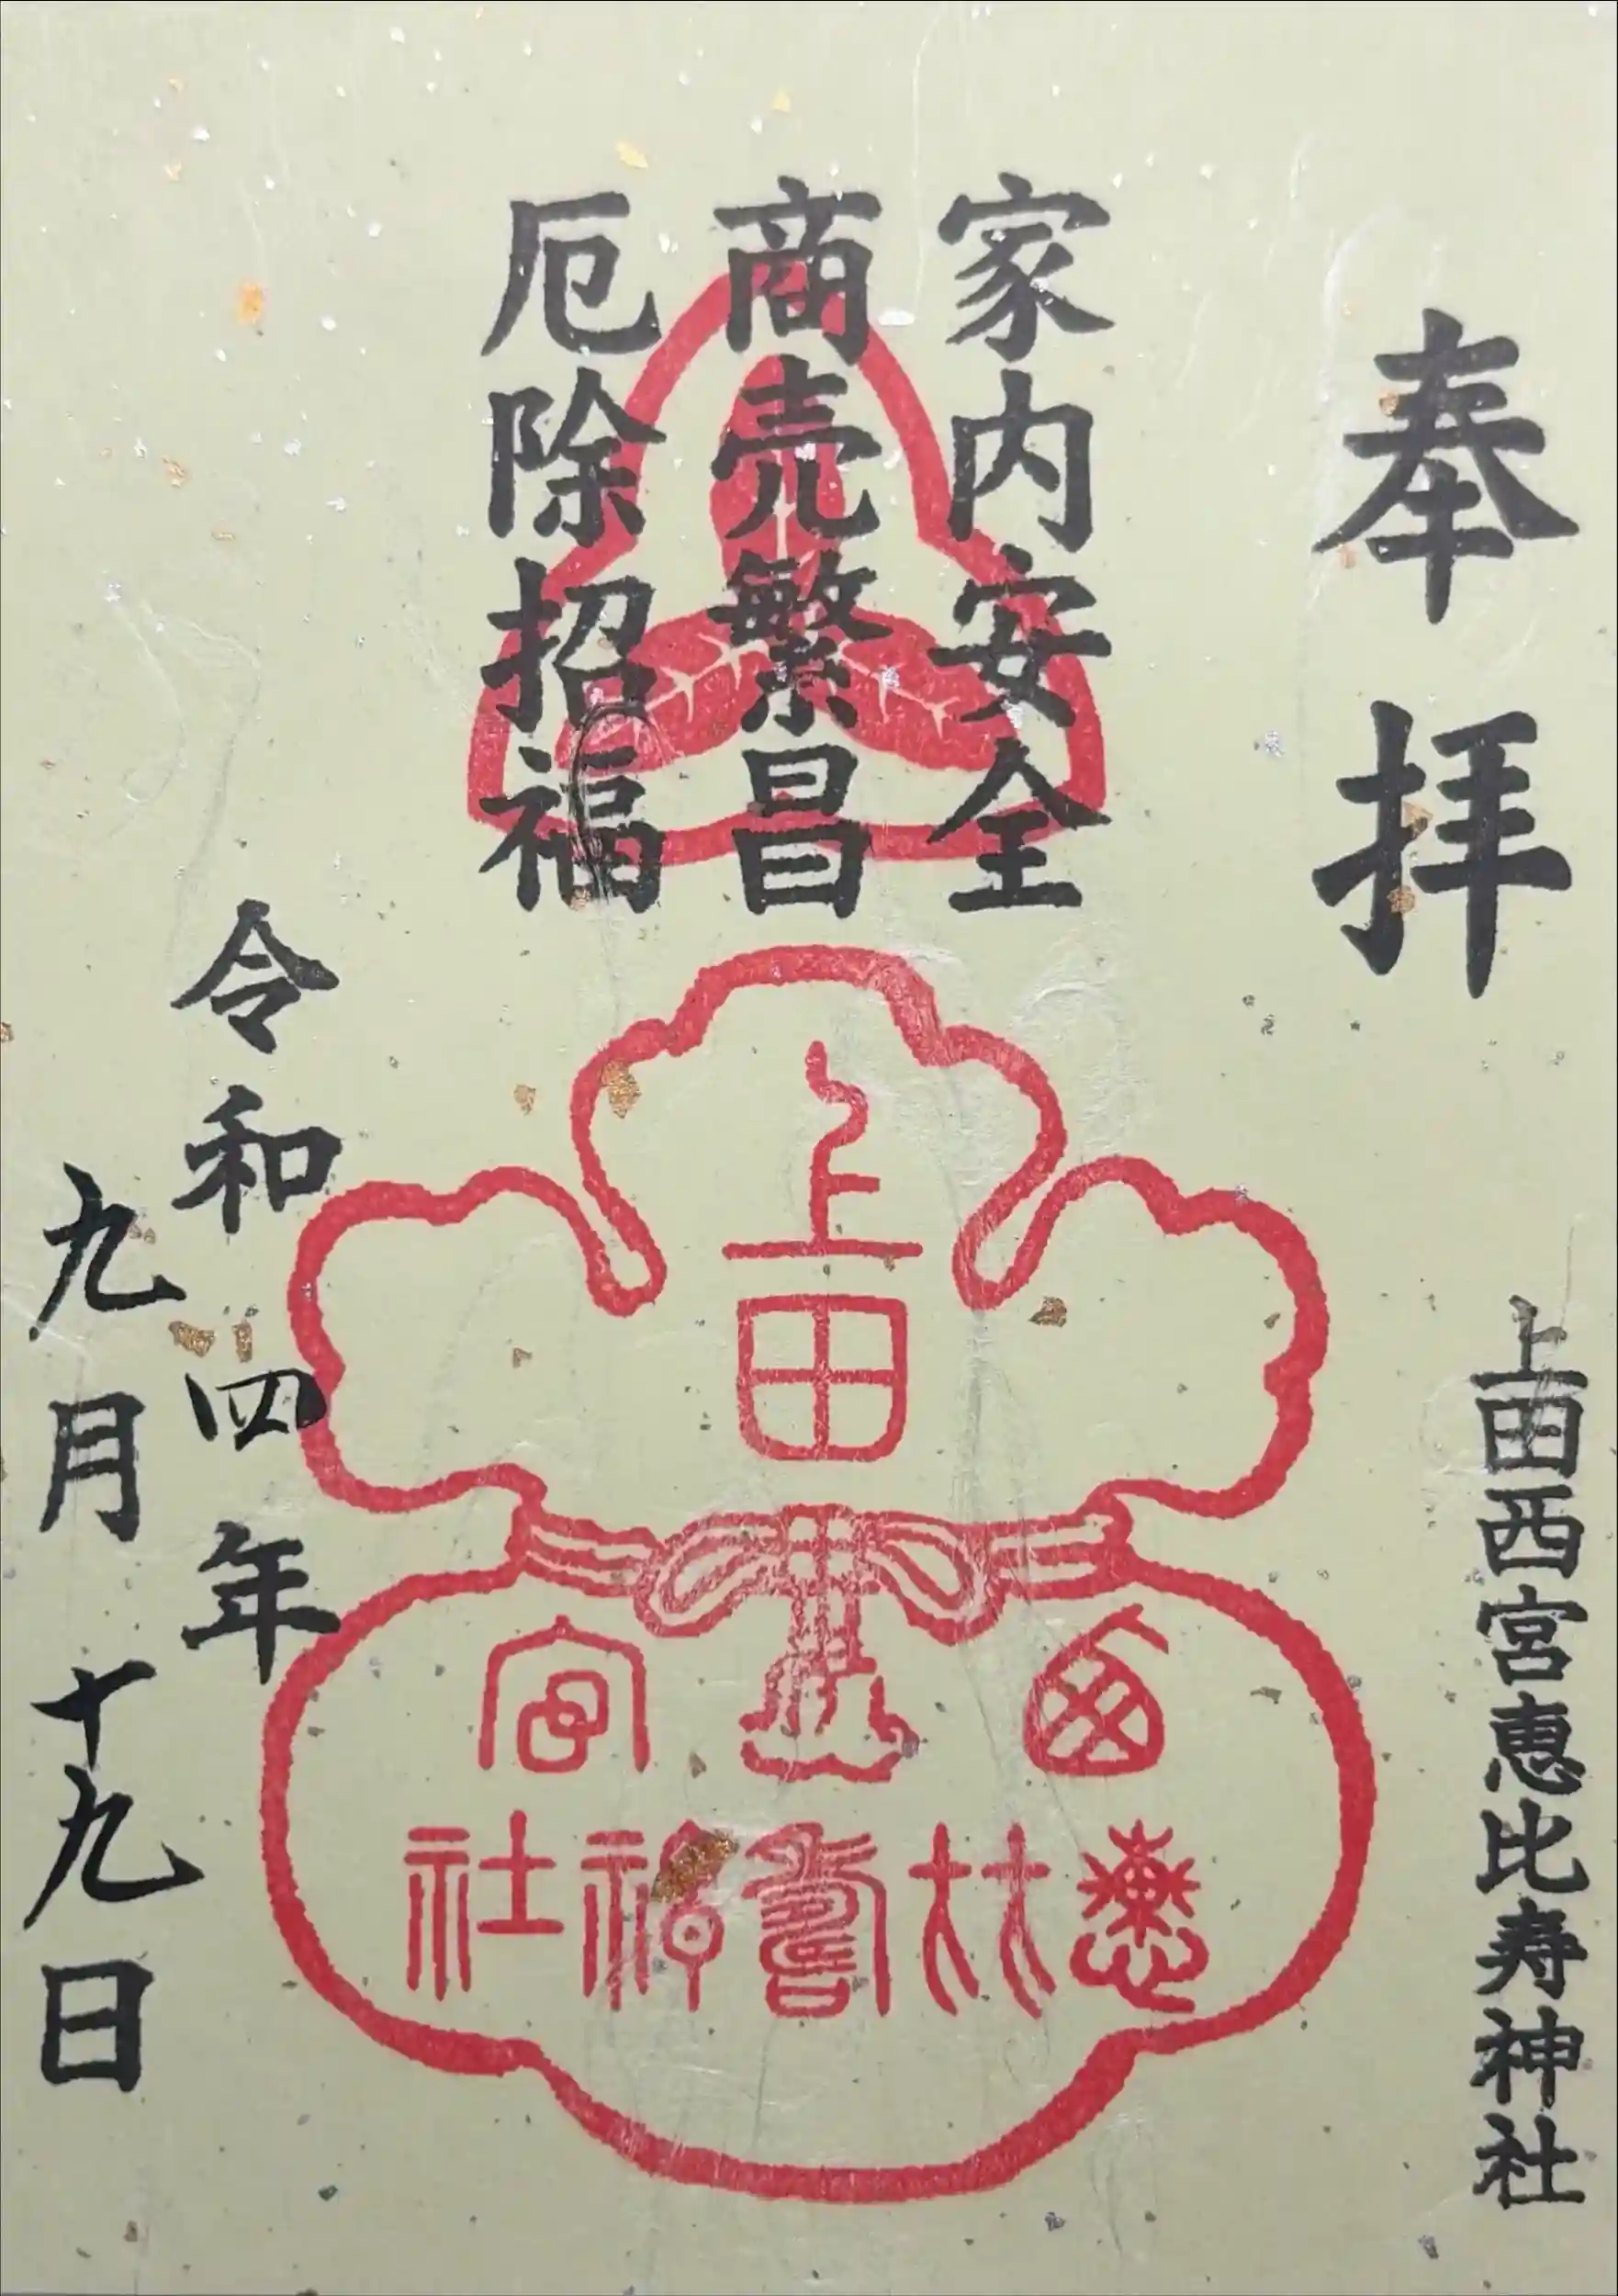 奉拝
上田西宮恵比寿神社
家内安全
商売繁昌
厄除招福
上田
西宮
恵比寿神社
令和四年
九月十九日